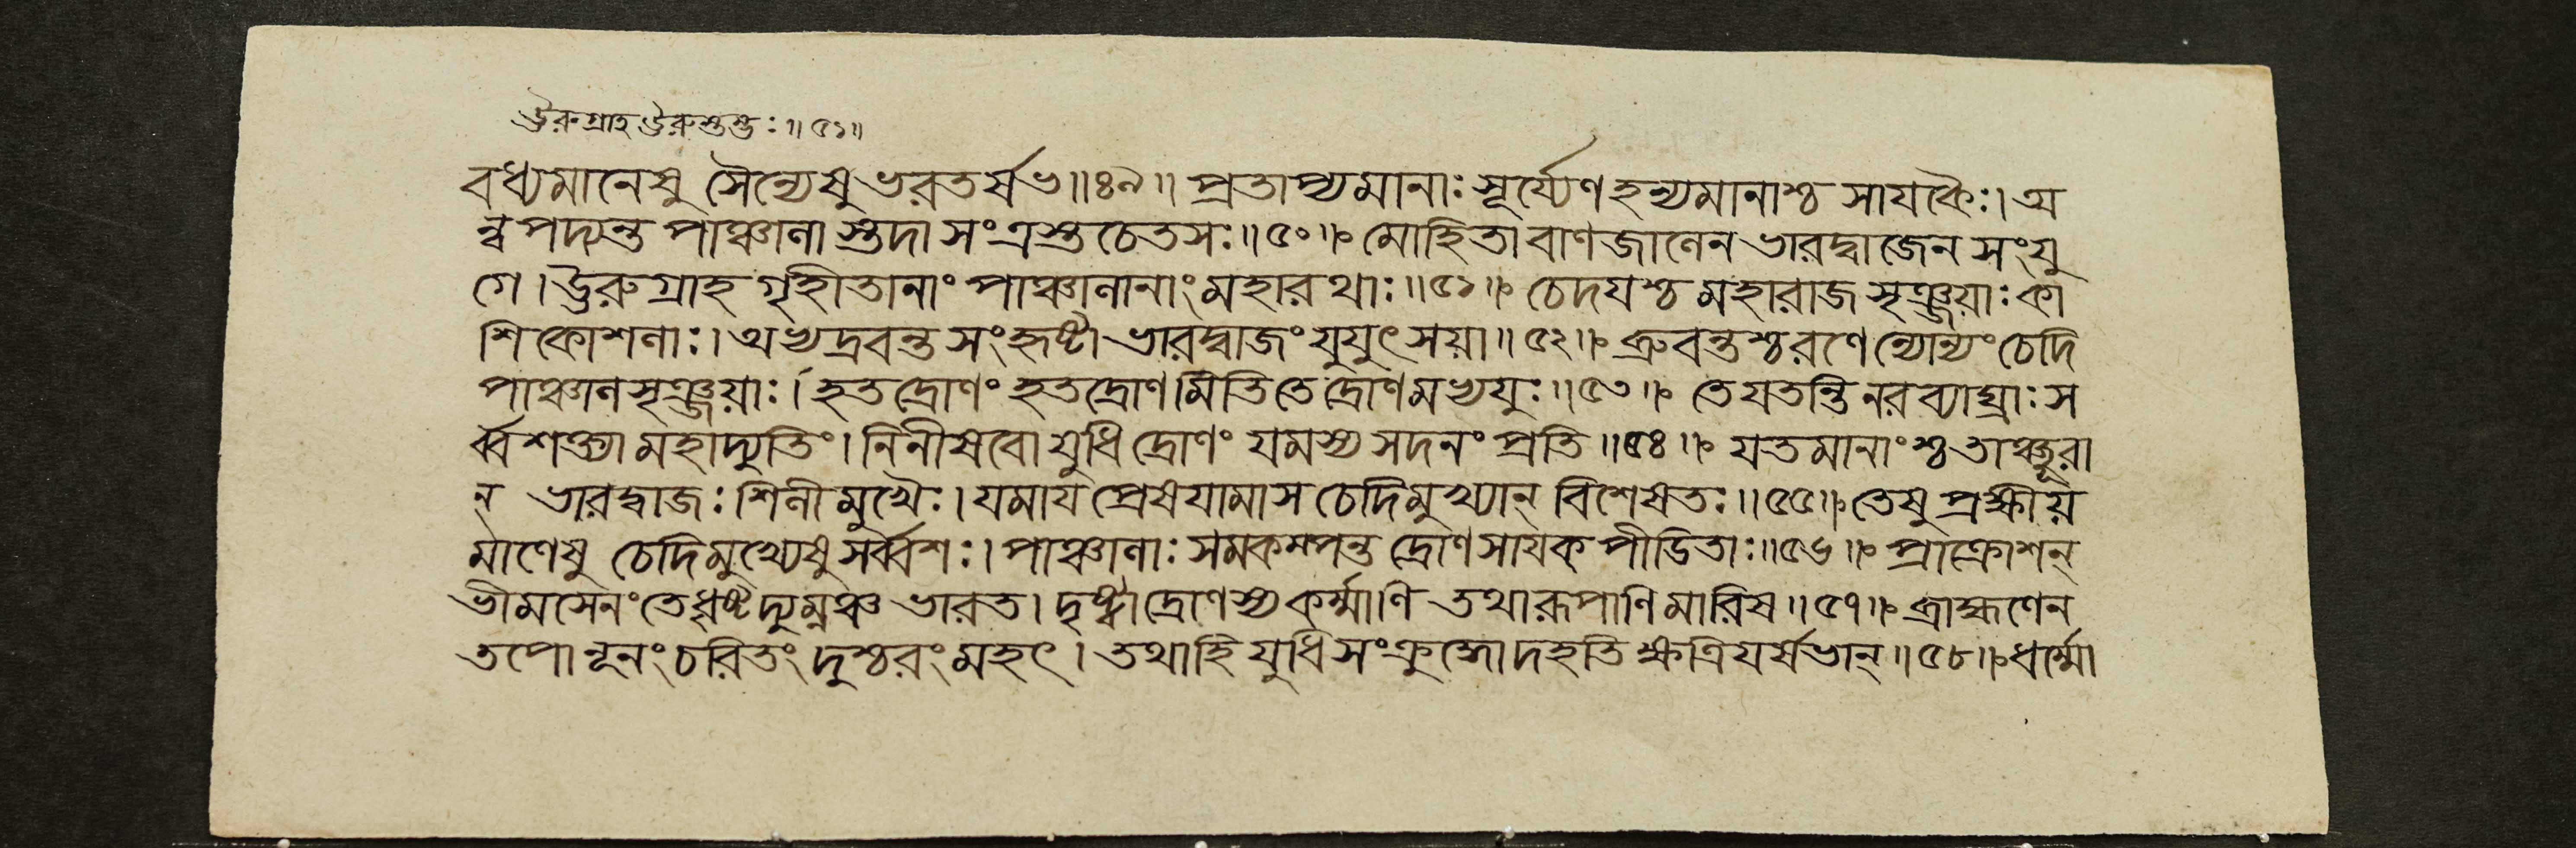 ঊরুগ্রাহ ঊরুস্তম্ভঃ॥৫১॥
বধ্যমানেষু সৈন্যেষু ভরতর্ষভ॥৪৯॥ প্রতাপ্যমানাঃ সূর্য্যেণ হন্যমানাশ্চ সায়কৈঃ। অ
ন্বপদ্যন্ত পাঞ্চালা স্তদা সংত্রস্তচেতসঃ॥৫০॥ মোহিতা বাণজালেন ভারদ্বাজেন সংযু
গে। ঊরুগ্রাহ গৃহীতানাং পাঞ্চালানাং মহারথাঃ॥৫১॥ চেদয়শ্চ মহারাজ সৃঞ্জয়াঃ কা
শিকোশলাঃ। অভ্যদ্রবন্ত সংহৃষ্টা ভারদ্বাজং যুযুৎসয়া॥৫২॥ ব্রুবন্তশ্চ রণেন্যোন্যং চেদি
পাঞ্চালসৃঞ্জয়াঃ। হত দ্রোণং হত দ্রোণমিতি তে দ্রোণমভ্যযুঃ॥৫৩॥ তে যতন্তি নরব্যাঘ্রাঃ স
র্ব্বশক্ত্যা মহাদ্যুতিং। নিনীষবো যুধি দ্রোণং যমস্য সদনং প্রতি॥৫৪॥ যতমানাংশ্চ তাঞ্ছূরা
ন্ ভারদ্বাজঃ শিলীমুখৈঃ। যমায় প্রেষয়ামাস চেদিমুখ্যান্ বিশেষতঃ॥৫৫॥ তেষু প্রক্ষীয়
মাণেষু চেদিমুখ্যেষু সর্ব্বশঃ। পাঞ্চালাঃ সমকম্পন্ত দ্রোণসায়ক পীডিতাঃ॥৫৬॥ প্রাক্রোশন্
ভীমসেনং তে ধৃষ্টদ্যুম্নঞ্চ ভারত। দৃষ্ট্বা দ্রোণস্য কর্ম্মাণি তথারূপাণি মারিষ॥৫৭॥ ব্রাহ্মণেন
তপো নূনং চরিতং দুশ্চরং মহৎ। তথাহি যুধি সংক্রুদ্ধো দহতি ক্ষত্রিয়র্ষভান্॥৫৮॥ ধর্ম্মো